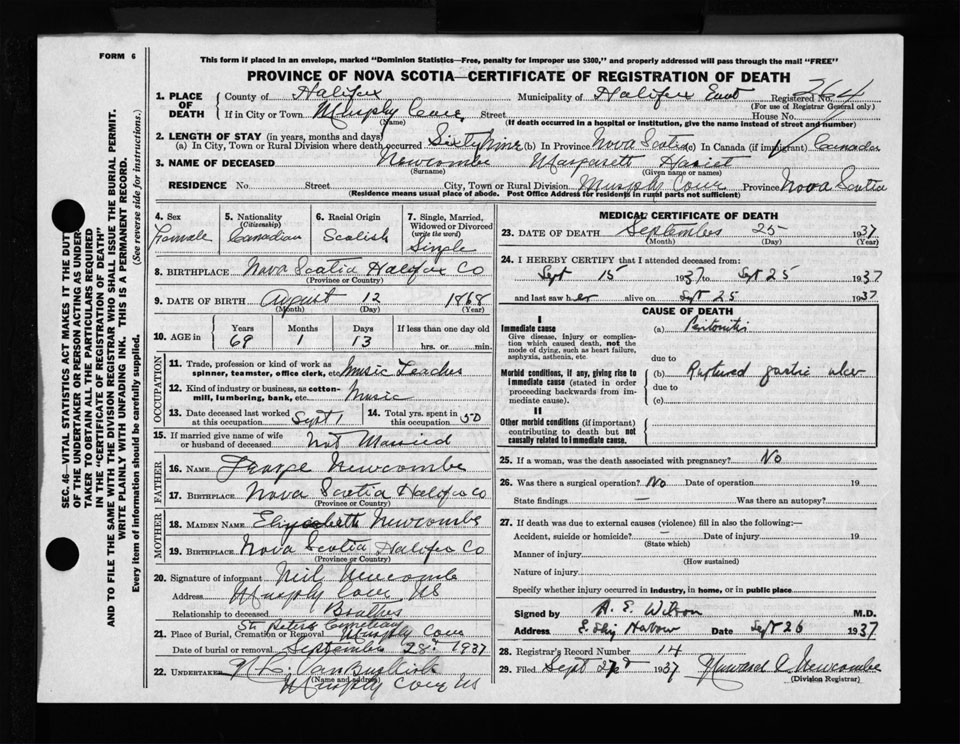 FORM 6
This form if placed in an envelope, marked "Dominion Statistics—Free, penalty for improper use $300," and properly addressed will pass through the mail "FREE"
PROVINCE OF NOVA SCOTIA—CERTIFICATE OF REGISTRATION OF DEATH
SEC. 46—VITAL STATISTICS ACT MAKES IT THE DUTY
OF THE UNDERTAKER OR PERSON ACTING AS UNDER-
TAKER TO OBTAIN ALL THE PARTICULARS REQUIRED
IN THE "CERTIFICATE OF REGISTRATION OF DEATH"
AND TO FILE THE SAME WITH THE DIVISION REGISTRAR WHO SHALL ISSUE THE BURIAL PERMIT.
WRITE PLAINLY WITH UNFADING INK. THIS IS A PERMANENT RECORD.
Every item of information should be carefully supplied. (See reverse side for instructions.)
1. PLACE OF DEATH County of Halifax Municipality of Halifax East Registered No. 264
(For use of Registrar General only)
If in City or Town Murphy Cove Street House No.
(Name) (If death occurred in a hospital or institution, give the name instead of street and number)
2. LENGTH OF STAY (in years, months and days)
(a) In City, Town or Rural Division where death occurred Sixty nine (b) In Province Nova Scotia (c) In Canada (if immigrant) Canada
3. NAME OF DECEASED Newcombe Margarett Hariet
(Surname) (Given name or names)
RESIDENCE No. Street City, Town or Rural Division Murphy Cove Province Nova Scotia
(Residence means usual place of abode. Post Office Address for residents in rural parts not sufficient)
4. Sex Female
5. Nationality (Citizenship) Canadian
6. Racial Origin Scotish
7. Single, Married, Widowed or Divorced (write the word) Single
8. BIRTHPLACE Nova Scotia Halifax Co
(Province or Country)
9. DATE OF BIRTH August 12 1868
(Month) (Day) (Year)
10. AGE in Years 69 Months 1 Days 13 If less than one day old hrs. or min.
OCCUPATION
11. Trade, profession or kind of work as spinner, teamster, office clerk, etc. Music Teacher
12. Kind of industry or business, as cotton-mill, lumbering, bank, etc. Music
13. Date deceased last worked at this occupation Sept 1 14. Total yrs. spent in this occupation 50
15. If married give name of wife or husband of deceased Not Married
FATHER
16. NAME Newcombe
17. BIRTHPLACE Nova Scotia Halifax Co
(Province or Country)
MOTHER
18. MAIDEN NAME Elizabeth Newcombe
19. BIRTHPLACE Nova Scotia Halifax Co
(Province or Country)
20. Signature of informant Neil Newcombe
Address Murphy Cove NS
Relationship to deceased Brother
21. Place of Burial, Cremation or Removal St Peters Cemetery Murphy Cove
Date of burial or removal September 28th 1937
22. UNDERTAKER
(Name and address)
Murphy Cove NS
MEDICAL CERTIFICATE OF DEATH
23. DATE OF DEATH September 25 1937
(Month) (Day) (Year)
24. I HEREBY CERTIFY that I attended deceased from:
Sept 15 1937 to Sept 25 1937
and last saw her alive on Sept 25 1937
CAUSE OF DEATH
I
Immediate cause (a) Peritonitis
Give disease, injury or complication which caused death, not the mode of dying, such as heart failure, asphyxia, asthenia, etc
due to
Morbid conditions, if any, giving rise to immediate cause (stated in order proceeding backwards from immediate cause) (b) Ruptured gastric ulcer
due to
(c)
II
Other morbid conditions (if important) contributing to death but not causally related to immediate cause.
25. If a woman, was the death associated with pregnancy? No
26. Was there a surgical operation? No Date of operation 19
State findings — Was there an autopsy?
27. If death was due to external causes (violence) fill in also the following:—
Accident, suicide or homicide? — Date of injury 19
(State which)
Manner of injury
(How sustained)
Nature of injury
Specify whether injury occurred in industry, in home, or in public place
Signed by A. E. Wilson M.D.
Address E. Ship Harbour Date Sept 26 1937
28. Registrar's Record Number 14
29. Filed Sept 1937 Newcombe
(Division Registrar)